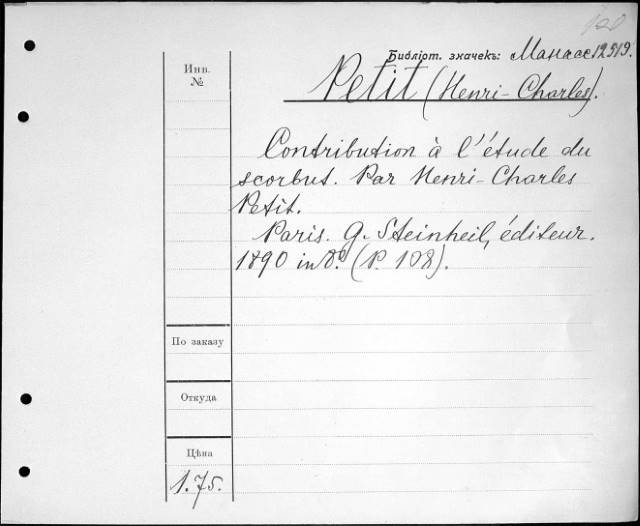 Библіот. значекъ: Манасс 12519.
Инв. №
Petit (Henri-Charles).
Contribution à l'étude du
scorbut. Par Henri-Charles
Petit.
Paris. G. Steinheil, éditeur.
1890 in 8º. (P. 108).
По заказу
Откуда
Цѣна
1.75.